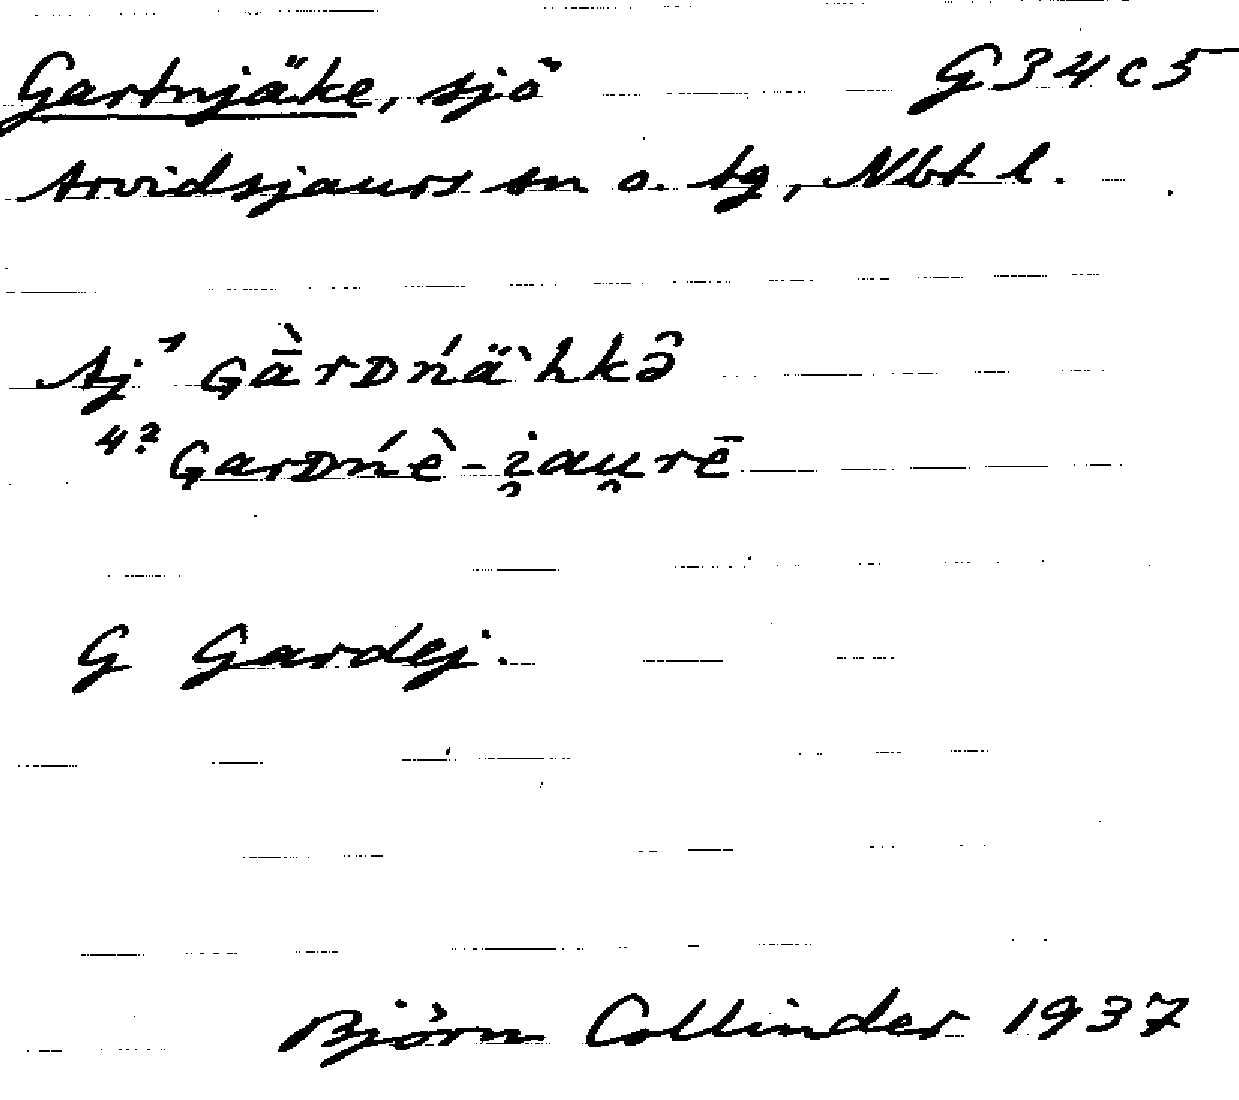 Gartnjäke, sjö G34c5
Arvidsjaurs sn o. tg, Nbt l.
Aj¹ Gā̀rDńä̀hkə̂
4? GarDńè-i̯au̯rē
G Gardej.
Björn Collinder 1937